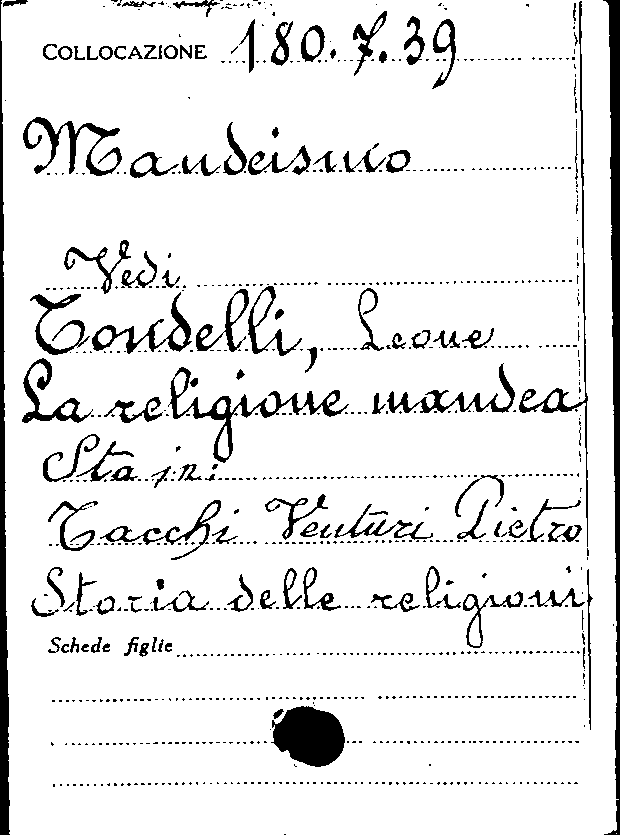 COLLOCAZIONE 180.7.39
Mandeismo
Vedi
Tondelli, Leone
La religione mandea
Sta in:
Tacchi Venturi Pietro
Storia delle religioni
Schede figlie